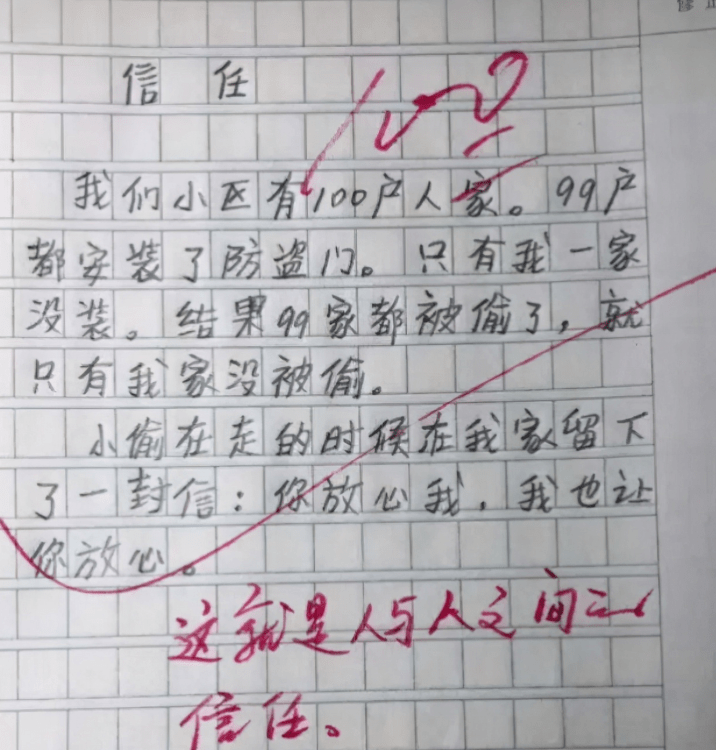 信任
100
我们小区有100户人家。99户
都安装了防盗门。只有我一家
没装。结果99家都被偷了,就
只有我家没被偷。
小偷在走的时候在我家留下
了一封信:你放心我,我也让
你放心。
这就是人与人之间的
信任。